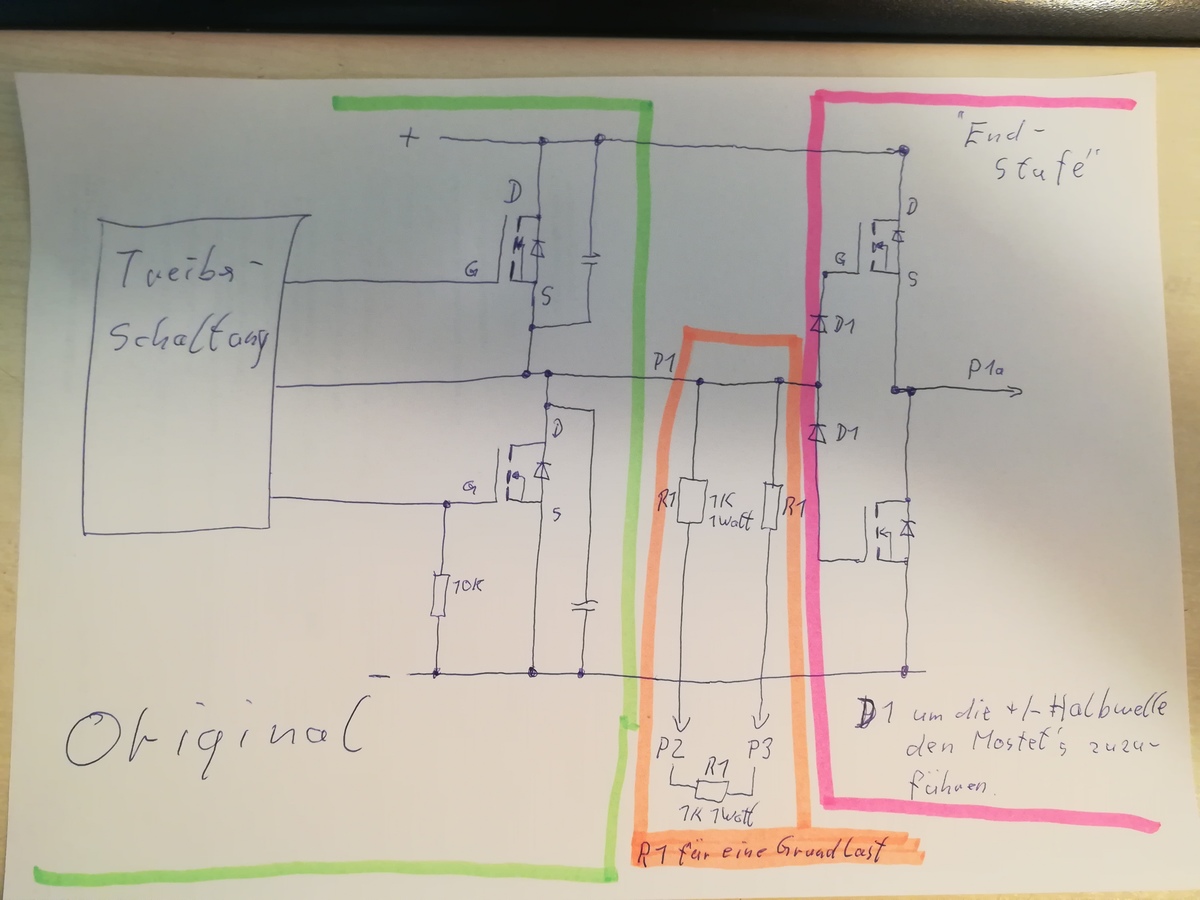 +
"End-
Stufe"
D
D
Treiber-
Schaltung
G
G
S
S
D1
P1
P1a
D
D1
G
R1
1K
1Watt
R1
S
10K
-
Original
D1 um die +/- Halbwelle
den Mosfet's zuzu-
führen.
P2
P3
R1
1K 1Watt
R1 für eine Grundlast